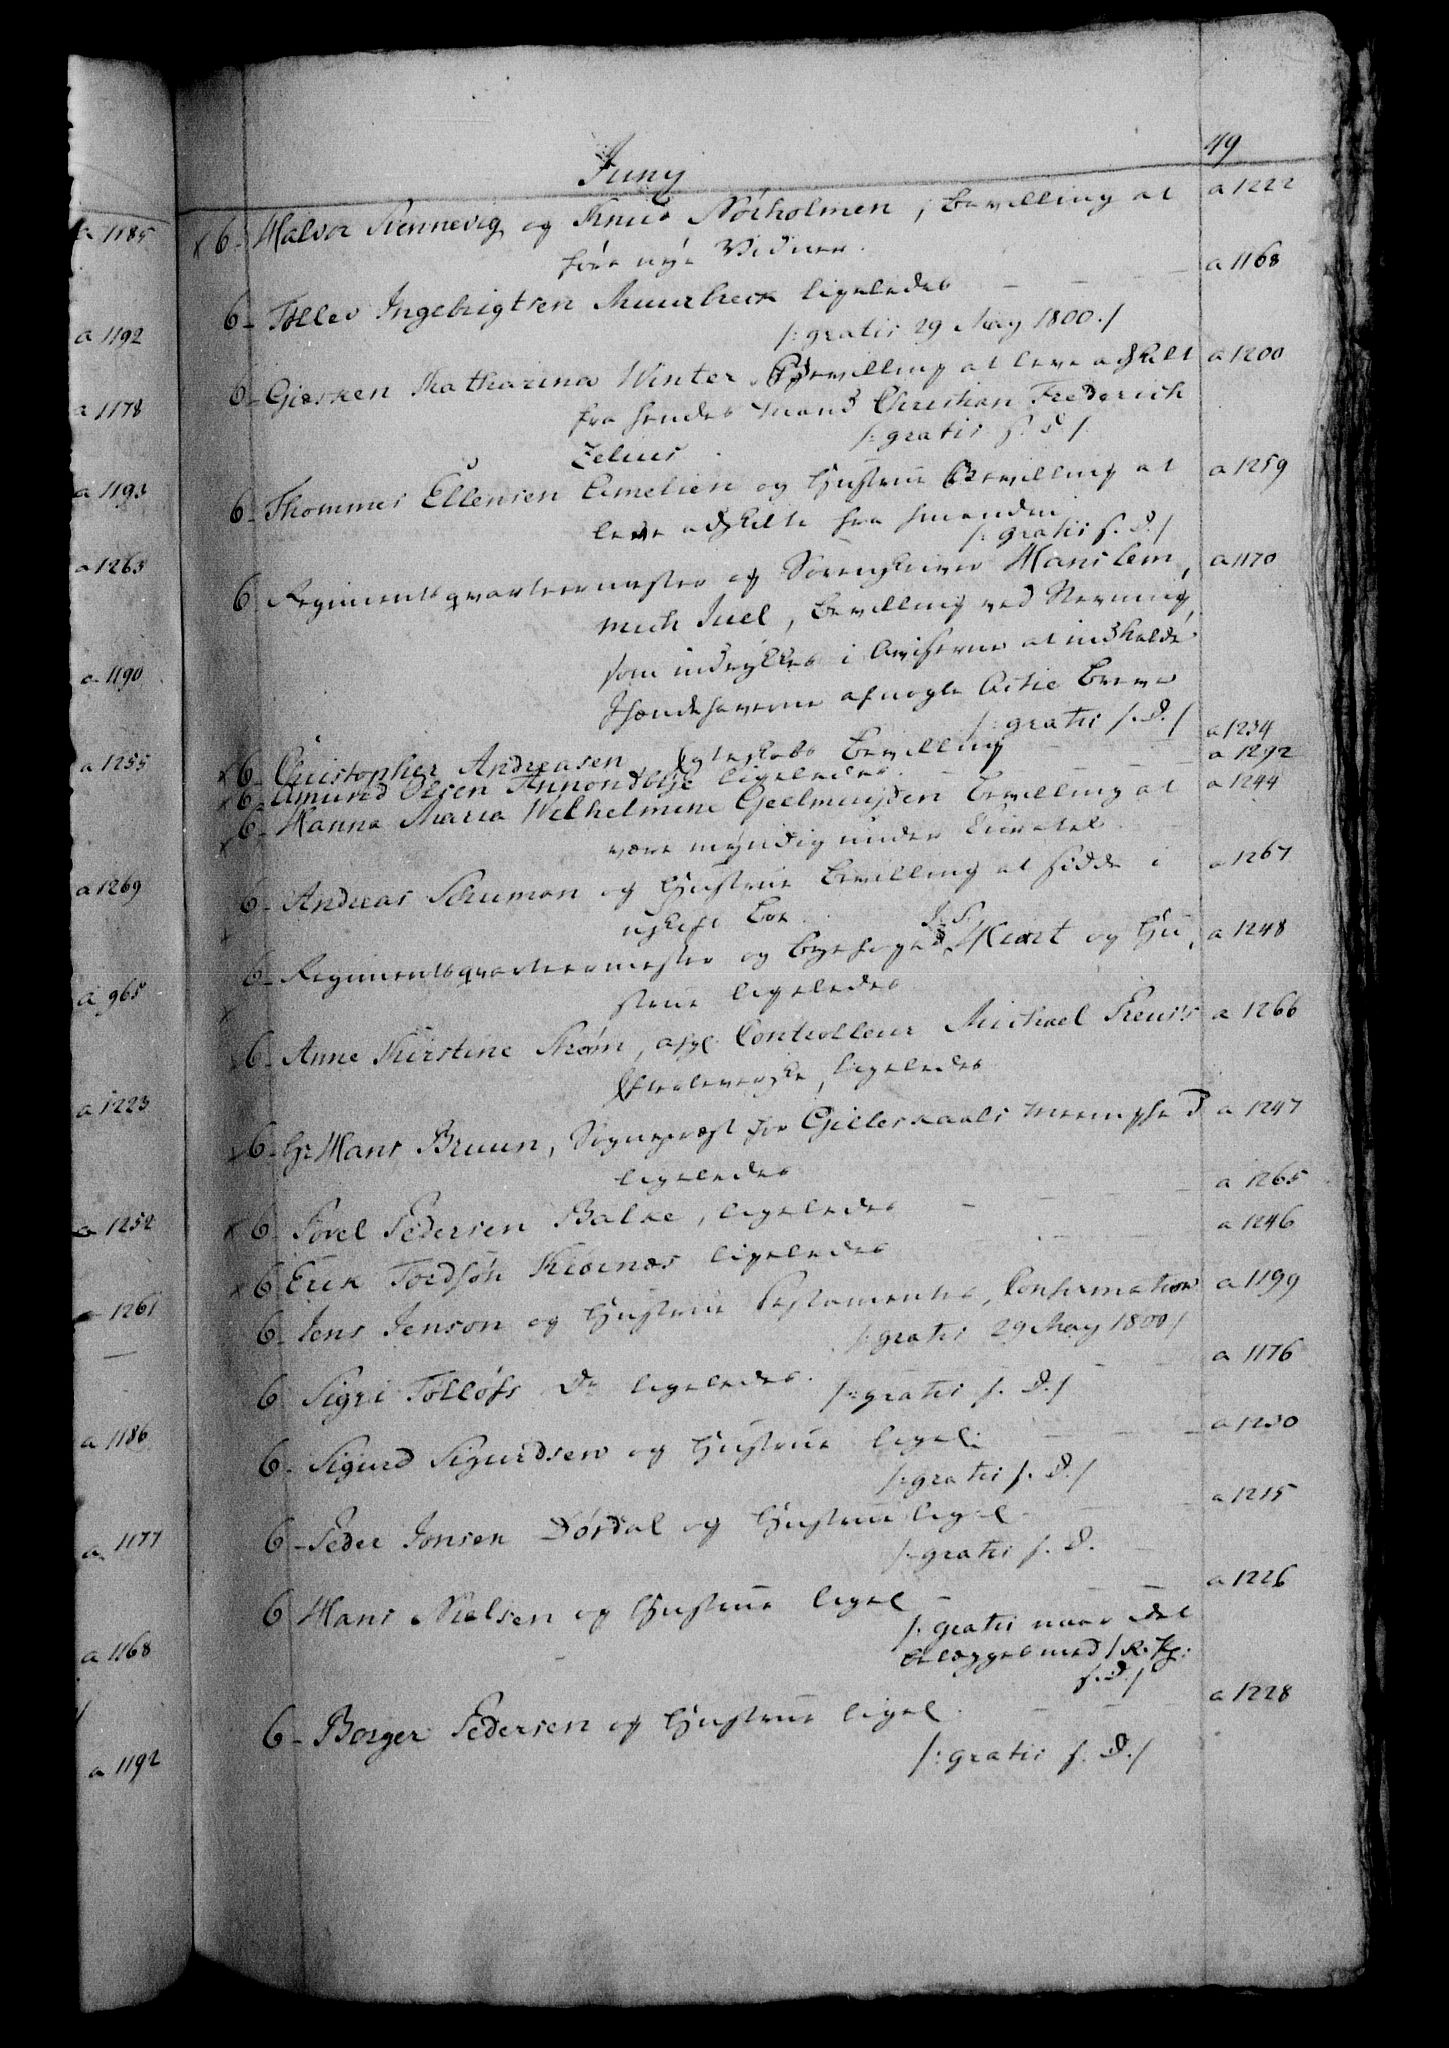 49
Juny
x 6- Halvor Svennevig og Knud Nörholmen, bevilling at a 1222
före nye Vidner.
6- Tollev Ingebrigtsen Muurbeck ligeledes a 1168
/: gratis 29 May 1800./
6- Giesken Katharina Winter, Bevilling at leve adskilt a 1200
fra hendes Mand Christian Frederich
Zelius. /: gratis s. d /
6- Thommes Ellensen Amelien og Hustrue Bevilling at a 1259
leve adskilte fra hinanden
/: gratis s. d./
6- Regimentsqvarteermester og Sorenskriver Hans Lem, a 1170
Juel, bevilling ved Stevning,
som indrykkes i Aviserne at indkalde
Ihændehaverne af nogle Actie breve
/: gratis s. d./
x 6- Christopher Andreasen Egteskabs bevilling a 1234
x 6- Amund Olsen ligeledes. a 1292
x 6- Hanna Maria Wilhelmine Geelmuyden bevilling at a 1244
være myndig under Curatel
6- Andreas Schuman og Hustrue bevilling at sidde i a 1267
uskift boe.
6- Regimentsqvarteermester og Byefoged J. S. og Hu, a 1248
strue ligeledes
6- Anne Kirstine Strøm, afg. Controlleur Michael Preus's a 1266
Efterleverske, ligeledes
x 6- Hr Hans Bruun, Sognepræst for Gilleskaals Menighed a 1247
ligeledes
x 6- Povel Pedersen Balke, ligeledes a 1265
x 6 Erik Tordsøn ligeledes a 1246
6- Jens Jenson og Hustrue Testamentes, Confirmation a 1199
/: gratis 29 May 1800/
6 Sigri Tolløfs Dr ligeledes. a 1176
/: gratis s. d./
6- Sigurd Sigurdsen og Hustrue ligel: a 1230
/: gratis s. d./
6- Peder Jonsen Dórdal og Hustrue ligel. a 1215
/: gratis s. d.
6 Hans Nielsen og Hustrue ligel a 1226
/: gratis naar det
belægges med 1 R.
s. d./
6- Borger Pedersen og Hustrue ligel. a 1228
/: gratis s. d./
a 1185
a 1192
a 1178
a 1193
a 1263
a 1190
a 1255
a 1269
a 965
a 1223
a 1252
a 1261
a 1186
a 1177
a 1168
a 1192